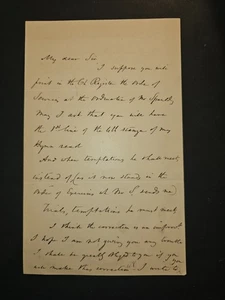 My dear Sir
I suppose you will
print in the Register the order of
Services at the ordination of Mr
May I ask that you will have
the line of the 4th stanza of my
Hymn read
And when temptations he shall meet
instead of as it now stands in the
order of Exercises Mr S. sends me
Trials, temptations he must meet
I think the correction is an improvt
I hope I am not giving you any trouble
I shall be greatly obliged to you if you
can make this correction. I wrote to